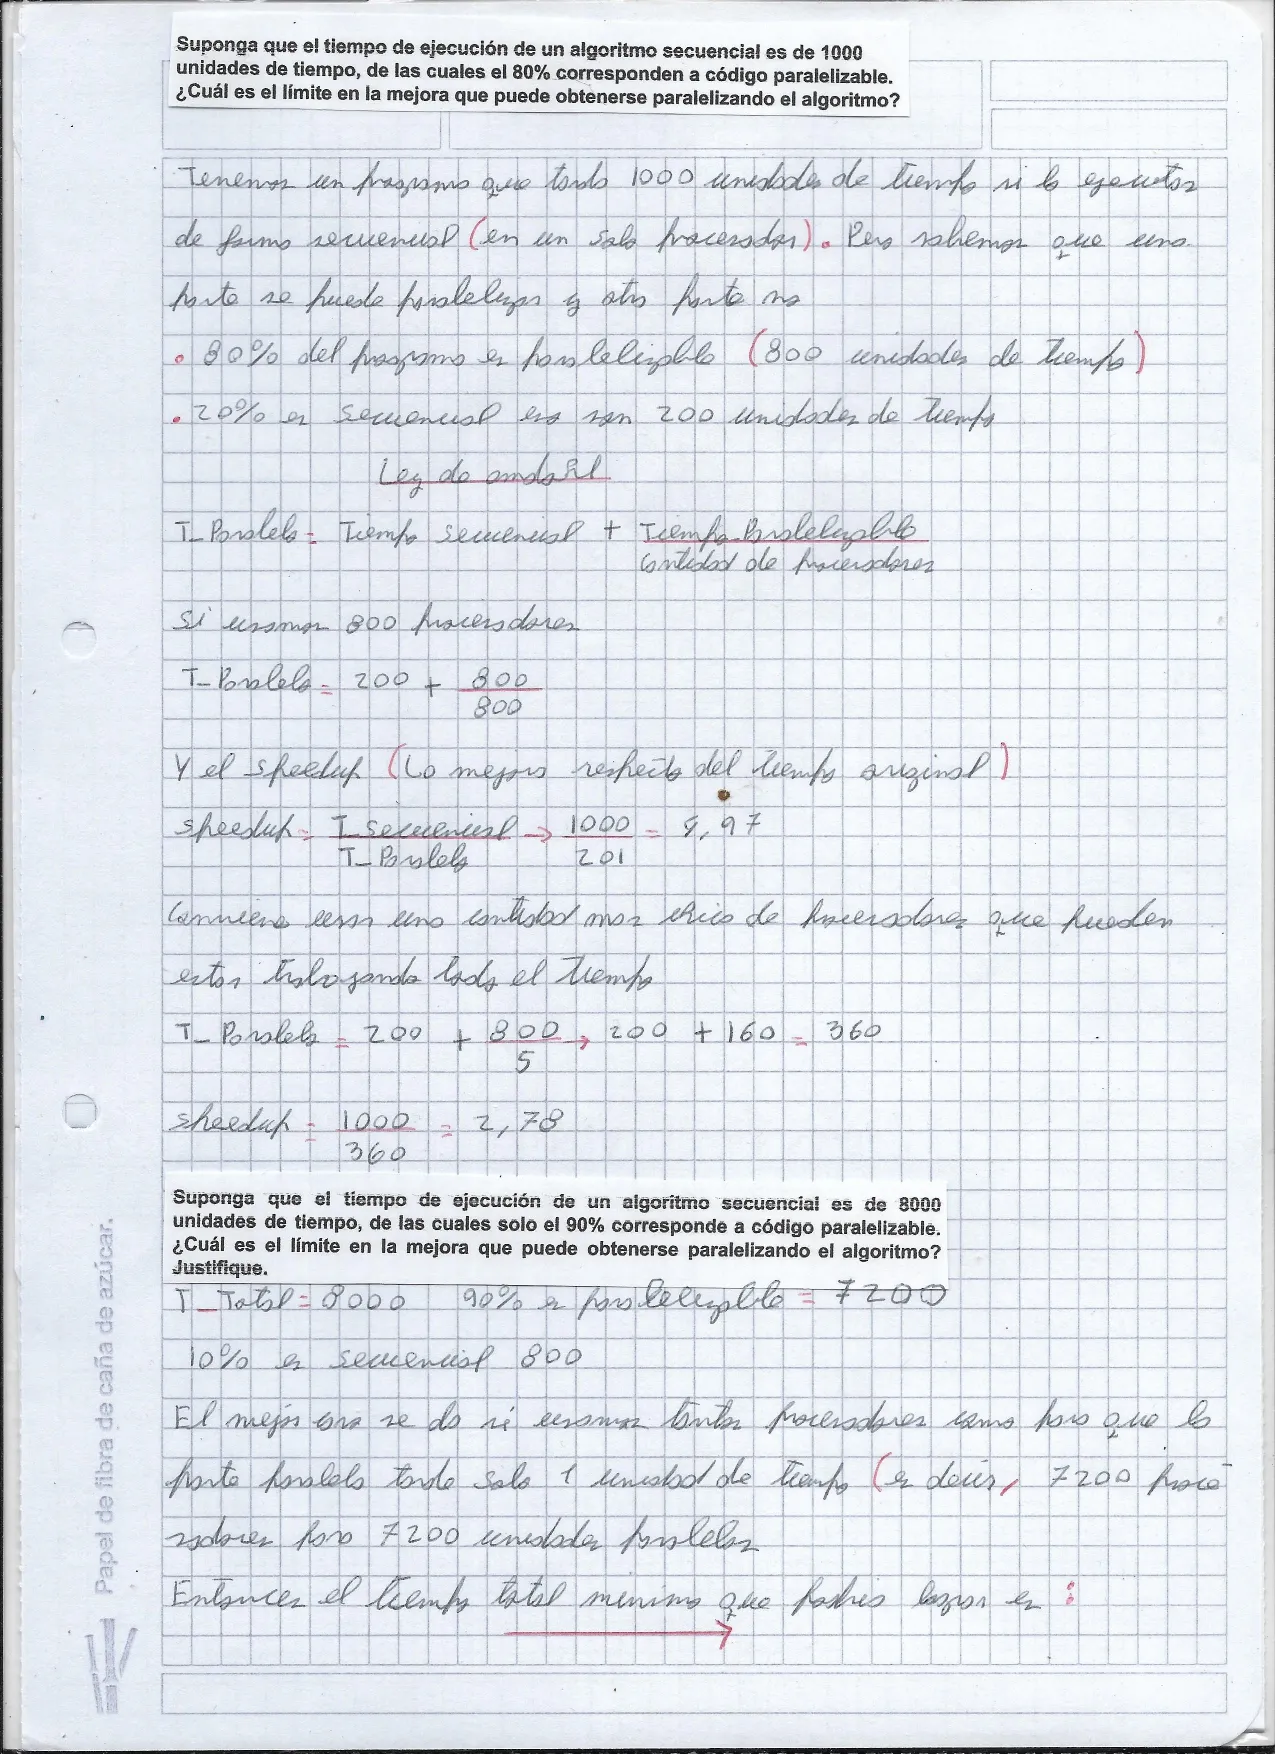 Suponga que el tiempo de ejecución de un algoritmo secuencial es de 1000
unidades de tiempo, de las cuales el 80% corresponden a código paralelizable.
¿Cuál es el límite en la mejora que puede obtenerse paralelizando el algoritmo?
Tenemos un programa que tarda 1000 unidades de tiempo si lo ejecutas
de forma secuencial (en un solo procesador). Pero sabemos que una
parte se puede paralelizar y otra parte no
• 80% del programa es paralelizable (800 unidades de tiempo)
• 20% es secuencial eso son 200 unidades de tiempo
Ley de amdahl
T_Paralelo = Tiempo secuencial + Tiempo Paralelizable
Cantidad de procesadores
Si usamos 800 procesadores
T_Paralelo = 200 + 800
800
Y el speedup (Lo mejora respecto del tiempo original)
speedup = T_secuencial → 1000 = 4,97
T_Paralelo 201
Conviene usar una cantidad mas chica de procesadores que pueden
estar trabajando todo el tiempo
T_Paralelo = 200 + 800 → 200 + 160 = 360
5
speedup = 1000 = 2,78
360
Suponga que el tiempo de ejecución de un algoritmo secuencial es de 8000
unidades de tiempo, de las cuales solo el 90% corresponde a código paralelizable.
¿Cuál es el límite en la mejora que puede obtenerse paralelizando el algoritmo?
Justifique.
T_Total = 8000 90% es paralelizable = 7200
10% es secuencial 800
El mejor caso se da si usamos tantos procesadores como para que la
parte paralela tarde solo 1 unidad de tiempo (es decir, 7200 proce
sadores para 7200 unidades paralelas
Entonces el tiempo total minimo que podrias lograr es :
Papel de fibra de caña de azúcar.